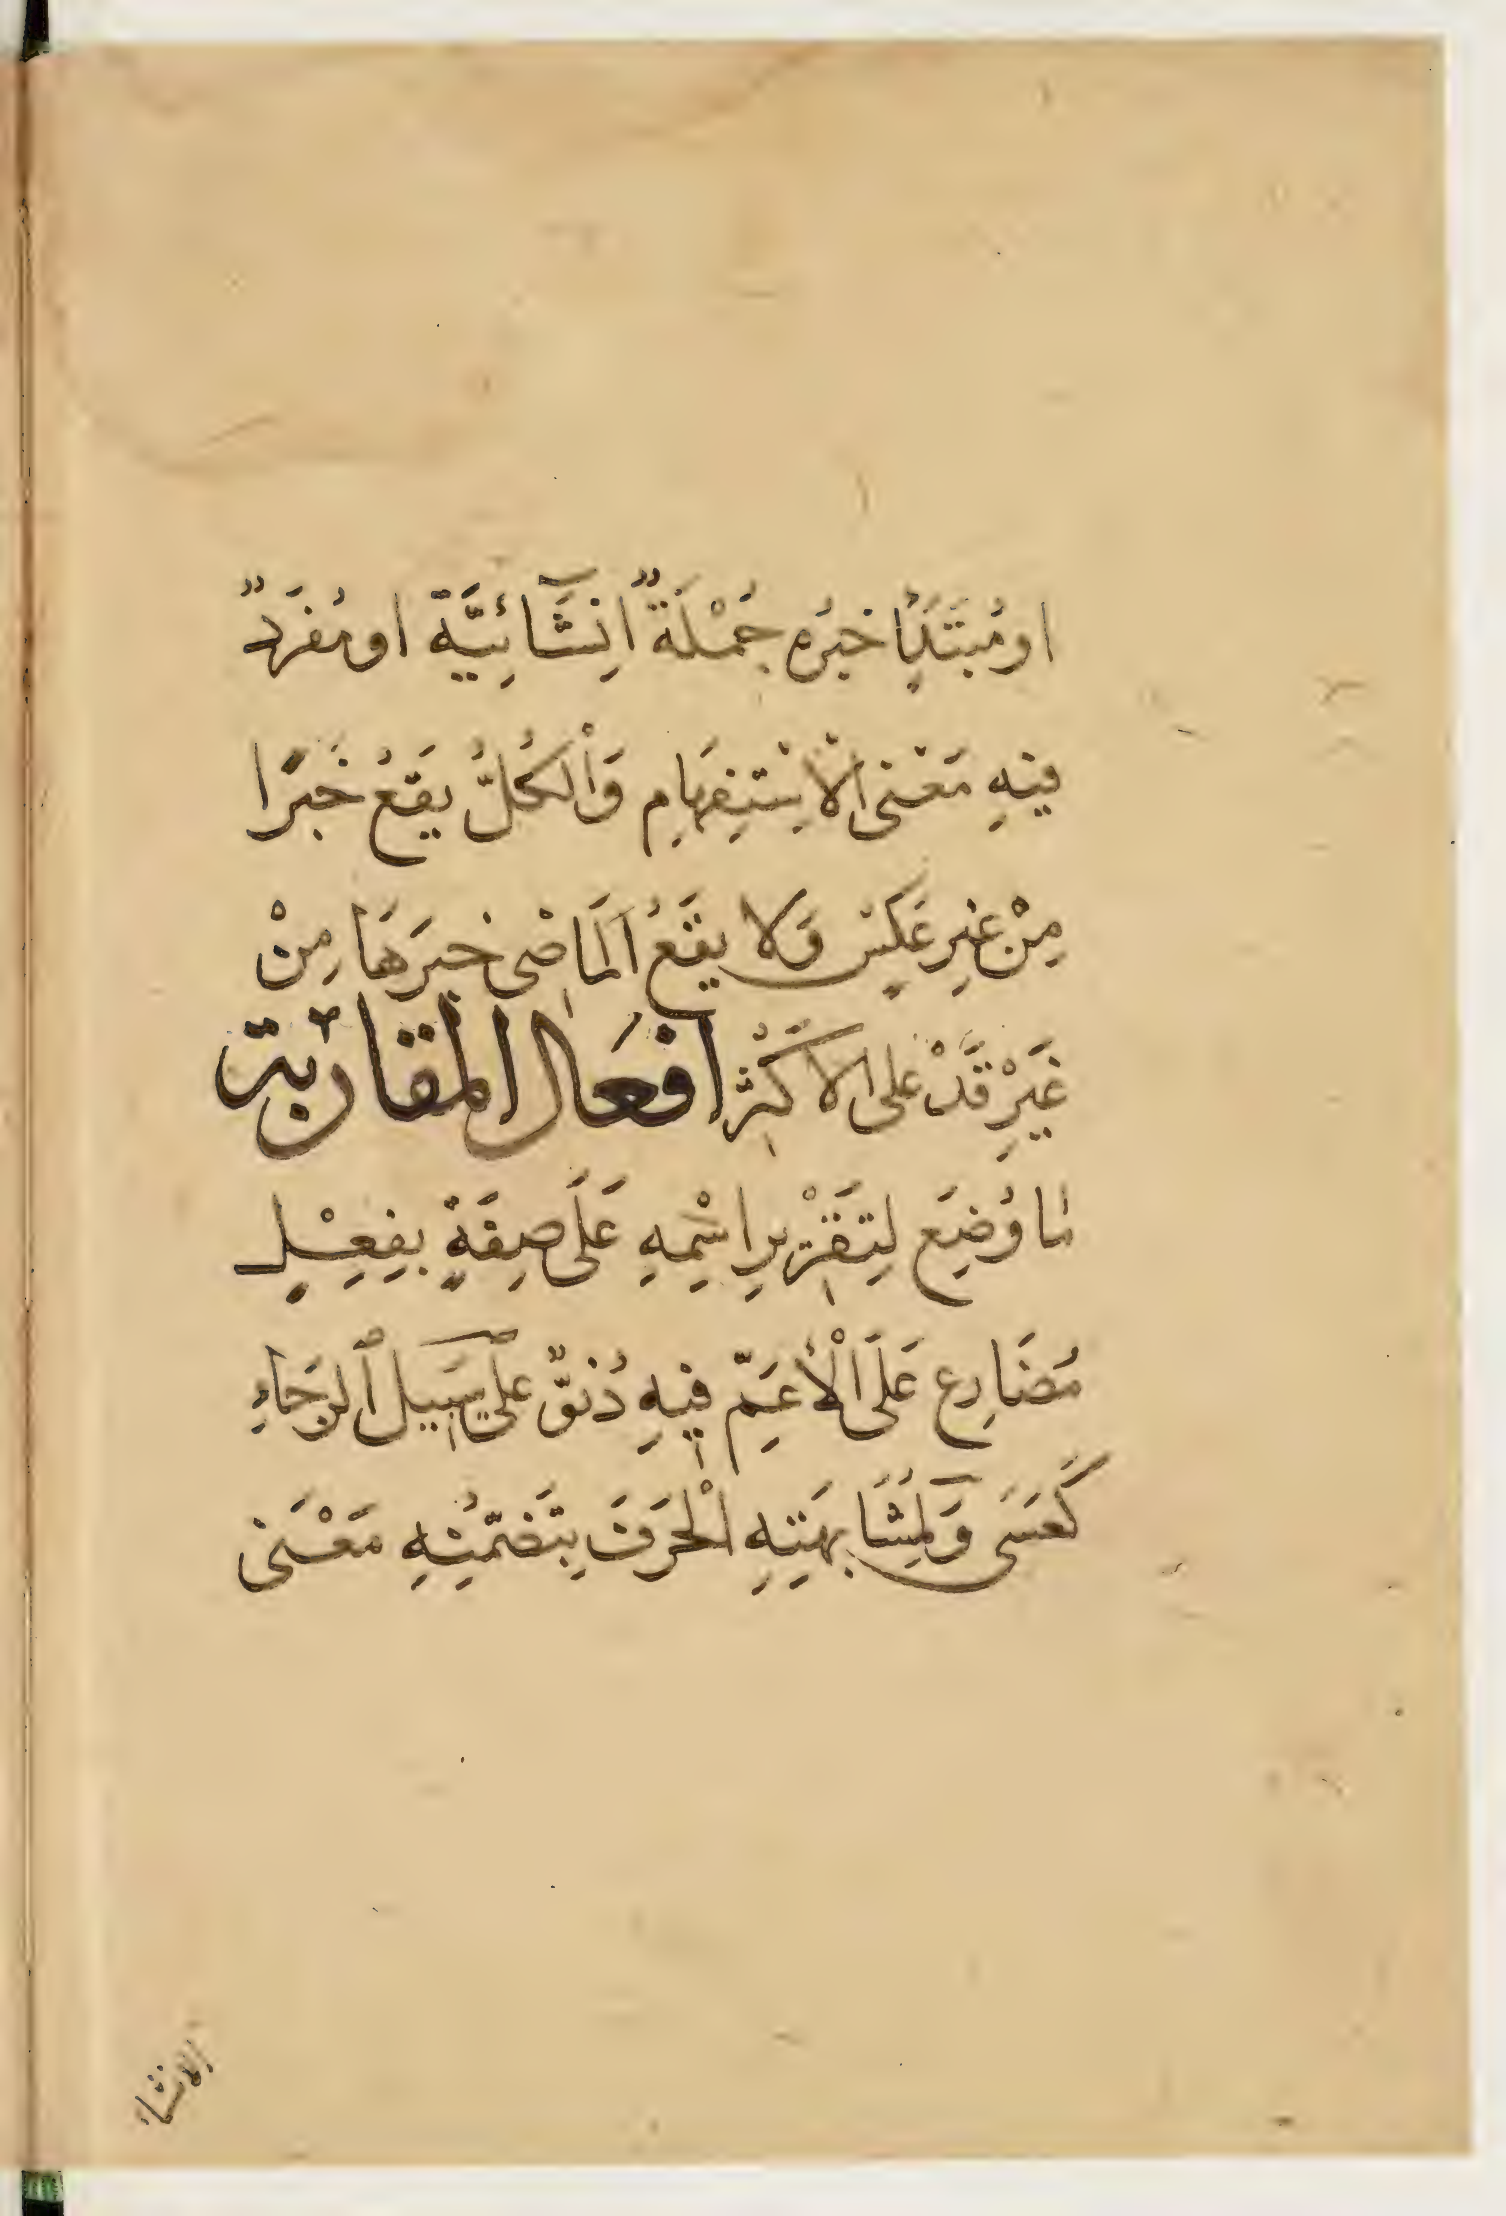 اومُبتَدَإٍ خبرُه جُمْلَةٌ اِنشَآئِيَّة اومُفرَدٌ
فيهِ مَعْنى الْاِسْتِفهَامِ وَالْكُلُّ يَقَعُ خَبَرًا
مِنْ غيرِ عَكسٍ وَلا يقَعُ اَلمَاضى خبرَهَا مِنْ
غَيْرِ قَدْ على الاكْثرِ افعَال المقاربة
مَا وُضِعَ لِتَقرِيرِ اسْمِهِ عَلَى صِفَةٍ بِفِعْلٍ
مُضَارِع عَلَى الْأعَمِّ فِيهِ دُنوٌّ على سَبِيل الرجَاءِ
كَعَسَى وَلِمُشَابهَتِهِ الْحَرفَ بِتَضمُّنِهِ مَعْنَى
الانشاء